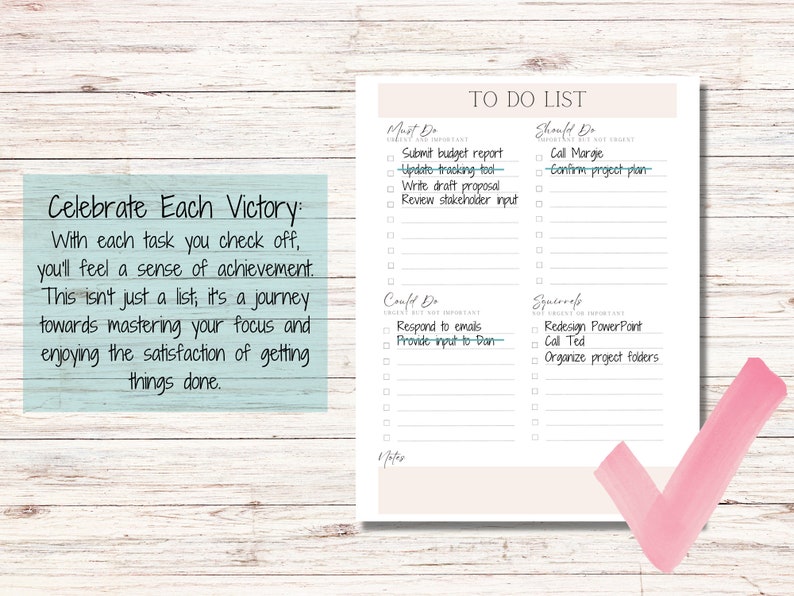 Celebrate Each Victory:
With each task you check off,
you'll feel a sense of achievement.
This isn't just a list; it's a journey
towards mastering your focus and
enjoying the satisfaction of getting
things done.
TO DO LIST
Must Do
URGENT AND IMPORTANT
Submit budget report
Update tracking tool
Write draft proposal
Review stakeholder input
Should Do
IMPORTANT BUT NOT URGENT
Call Margie
Confirm project plan
Could Do
URGENT BUT NOT IMPORTANT
Respond to emails
Provide input to Dan
Squirrels
NOT URGENT OR IMPORTANT
Redesign PowerPoint
Call Ted
Organize project folders
Notes